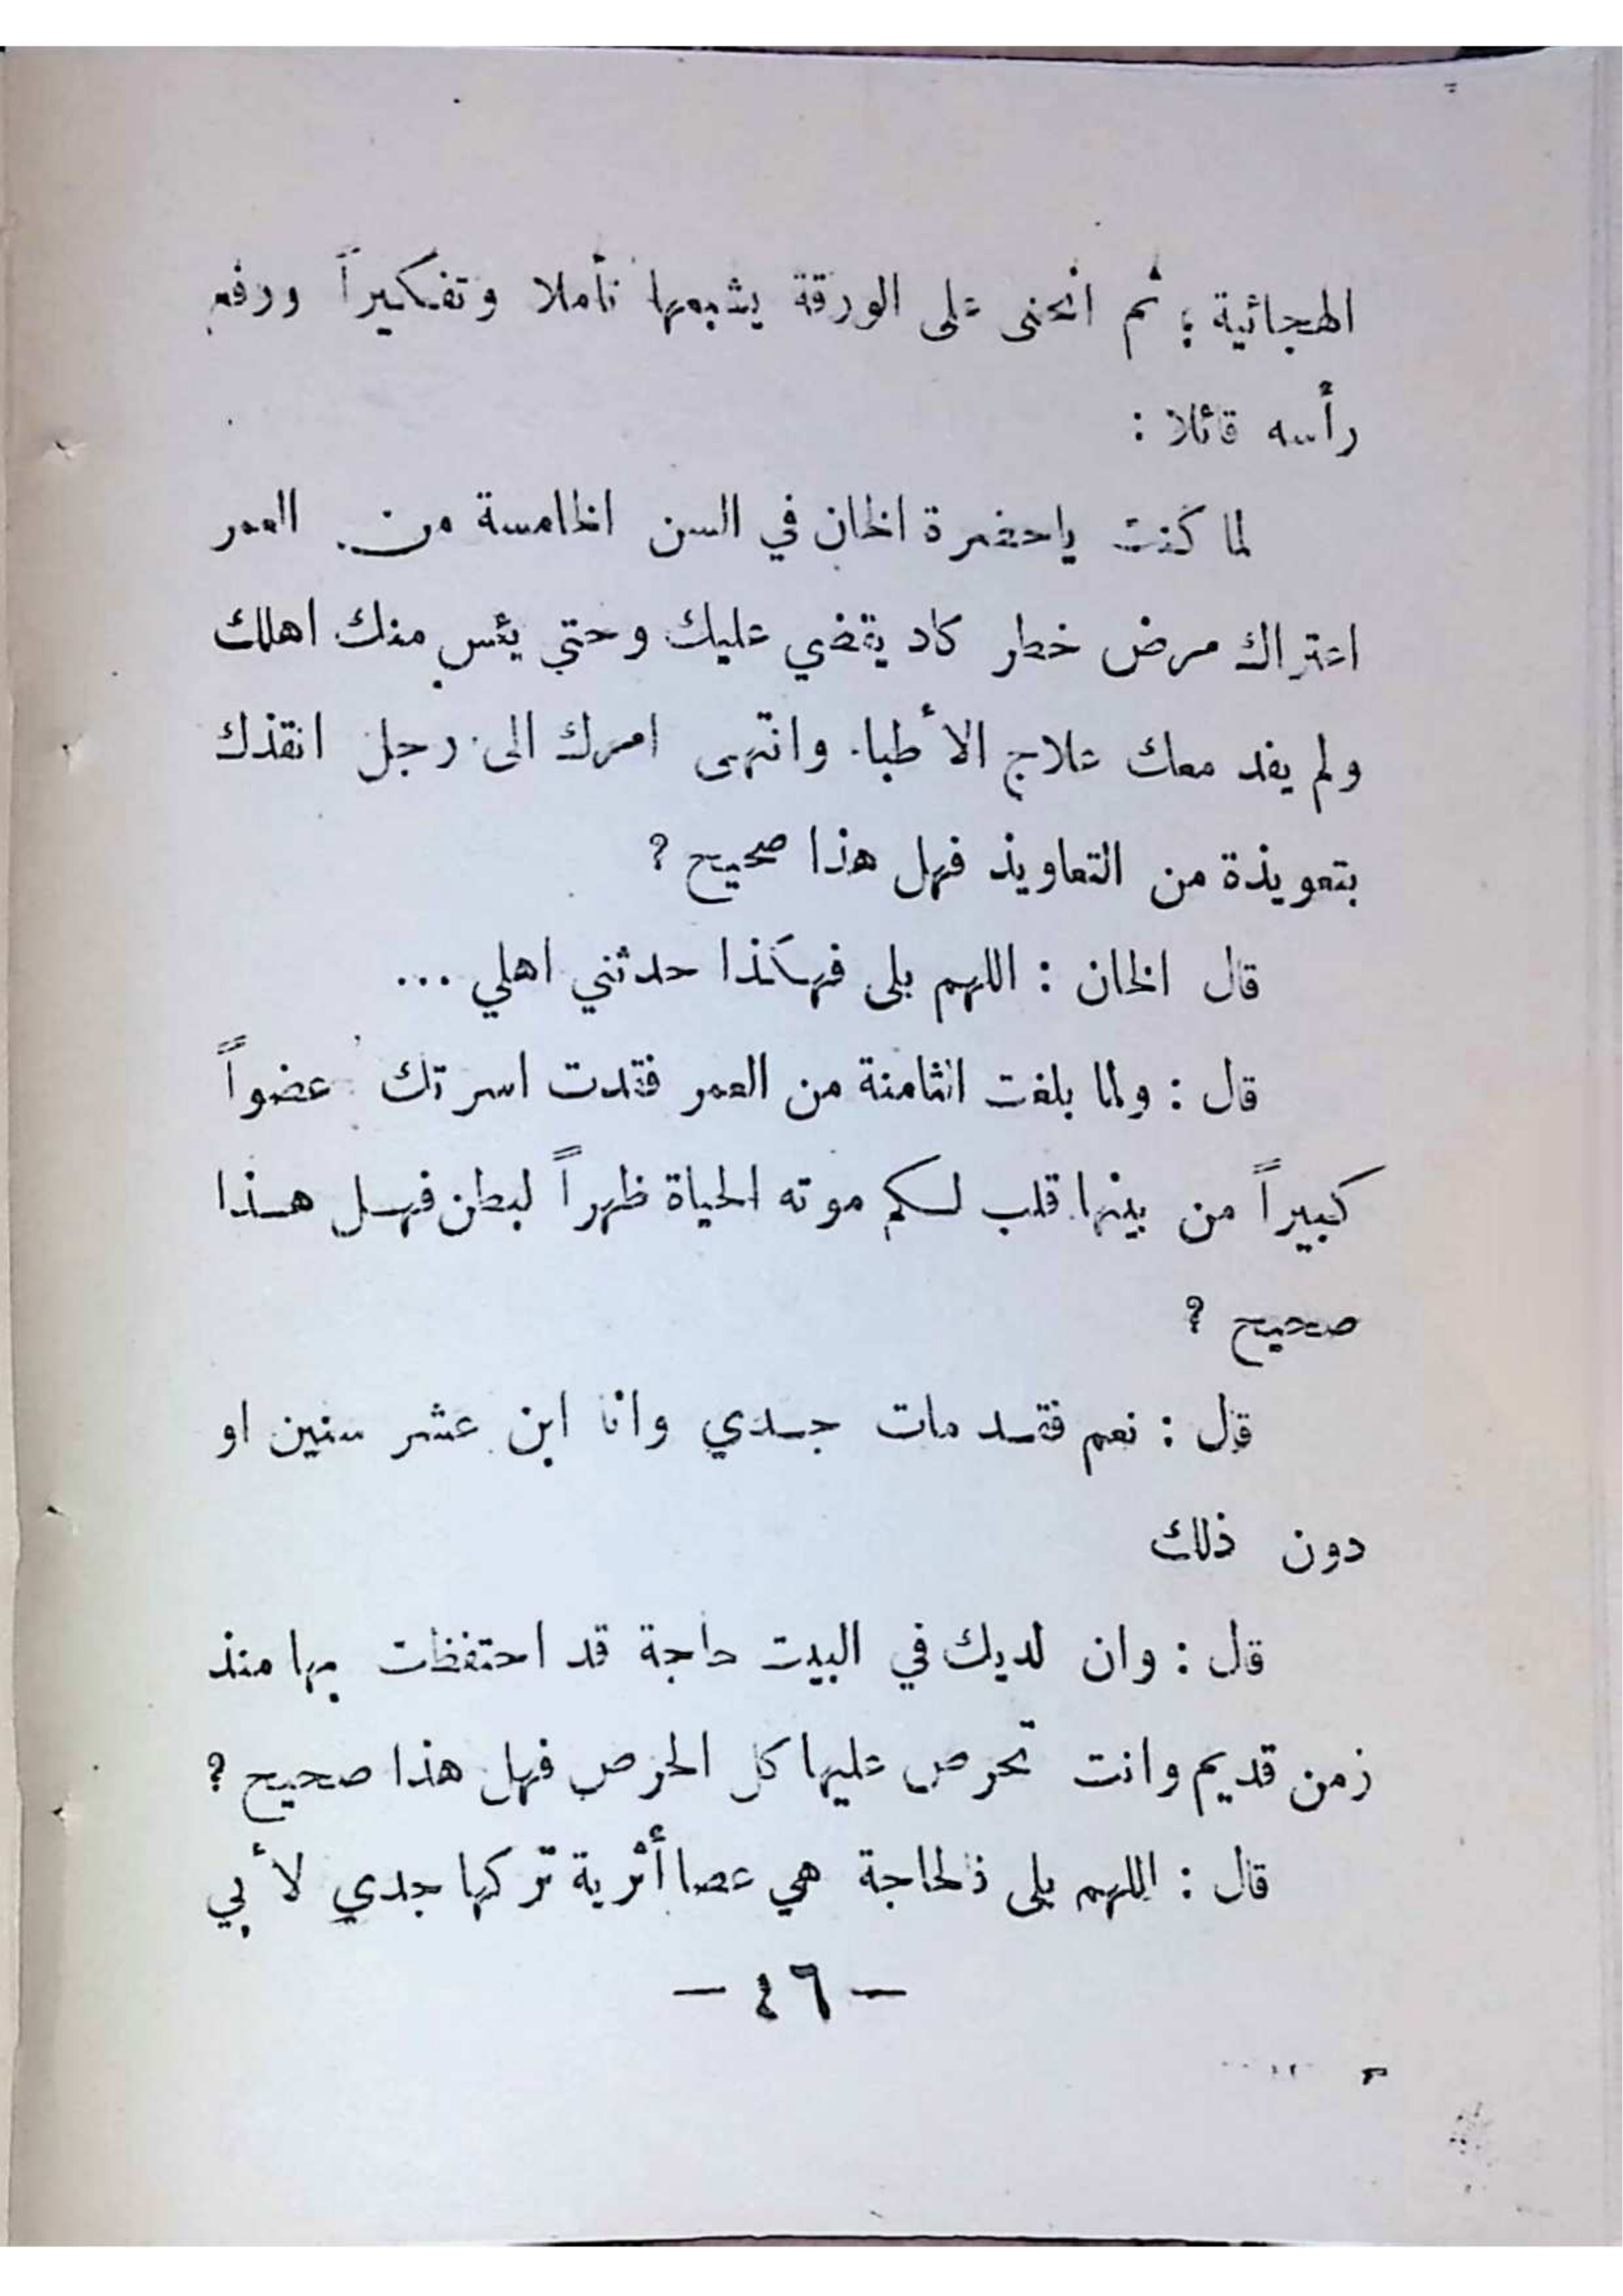 الهجائية ؛ ثم انحنى على الورقة يشبعها تأملا وتفكيراً ورفع
رأسه قائلا :
لما كنت ياحضرة الخان في السن الخامسة من العمر
اعتراك مرض خطر كاد يقضي عليك وحتى يئس منك اهلك
ولم يفد معك علاج الأطباء وانتهى امرك الى رجل انقذك
بتعويذة من التعاويذ فهل هذا صحيح ؟
قال الخان : اللهم بلى فهكذا حدثني اهلي ...
قال : ولما بلغت الثامنة من العمر فقدت اسرتك عضواً
كبيراً من بينها قلب لكم موته الحياة ظهراً لبطن فهل هذا
صحيح ؟
قال : نعم فقد مات جدي وانا ابن عشر سنين او
دون ذلك
قال : وان لديك في البيت حاجة قد احتفظت بها منذ
زمن قديم وانت تحرص عليها كل الحرص فهل هذا صحيح ؟
قال : اللهم بلى فالحاجة هي عصا أثرية تركها جدي لأبي
— ٤٦ —